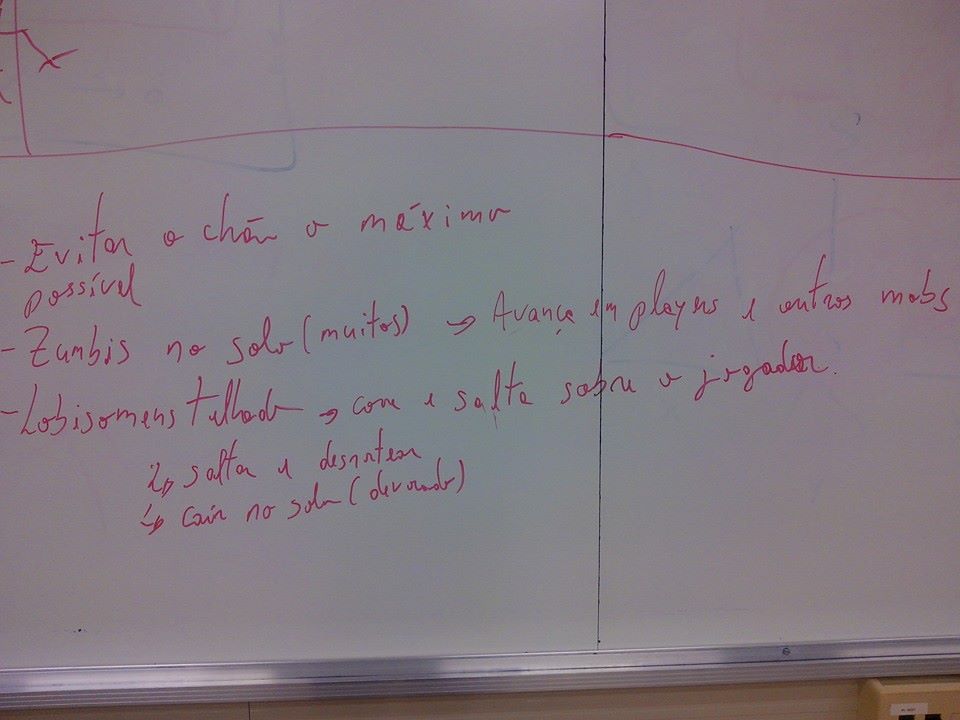 - Evitar o chão o máximo
possível
- Zumbis no solo (muitos) → Avança em players e outros mobs
- Lobisomens telhado → corre e salta sobre o jogador.
↳ saltar e desnortear
↳ cair no solo (devorado)